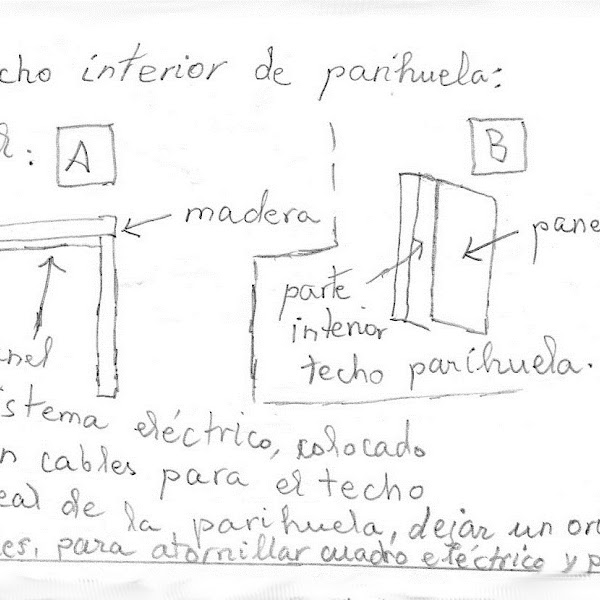 cho interior de parihuela:
A
B
madera
pane
parte
interior
techo parihuela.
nel
istema eléctrico, colocado
n cables para el techo
eal de la parihuela, dejar un or
es, para atornillar cuadro eléctrico y p